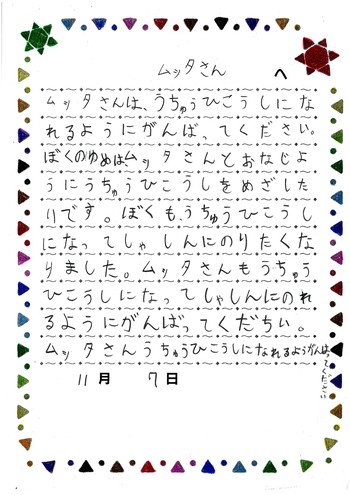 ムッタさん へ
ムッタさんは、うちゅうひこうしにな
れるようにがんばってください。
ぼくのゆめはムッタさんとおなじよ
うにうちゅうひこうしをめざした
いです。ぼくも、うちゅうひこうし
になってしゃしんにのりたくな
りました。ムッタさんもうちゅう
ひこうしになってしゃしんにのれ
るようにがんばってくだちい。
ムッタさんうちゅうひこうしになれるようがんばってください
11月 7日